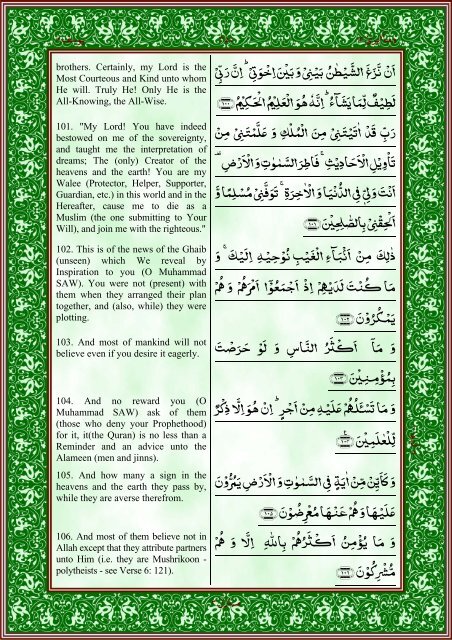 brothers. Certainly, my Lord is the
Most Courteous and Kind unto whom
He will. Truly He! Only He is the
All-Knowing, the All-Wise.
101. "My Lord! You have indeed
bestowed on me of the sovereignty,
and taught me the interpretation of
dreams; The (only) Creator of the
heavens and the earth! You are my
Walee (Protector, Helper, Supporter,
Guardian, etc.) in this world and in the
Hereafter, cause me to die as a
Muslim (the one submitting to Your
Will), and join me with the righteous."
102. This is of the news of the Ghaib
(unseen) which We reveal by
Inspiration to you (O Muhammad
SAW). You were not (present) with
them when they arranged their plan
together, and (also, while) they were
plotting.
103. And most of mankind will not
believe even if you desire it eagerly.
104. And no reward you (O
Muhammad SAW) ask of them
(those who deny your Prophethood)
for it, it(the Quran) is no less than a
Reminder and an advice unto the
Alameen (men and jinns).
105. And how many a sign in the
heavens and the earth they pass by,
while they are averse therefrom.
106. And most of them believe not in
Allah except that they attribute partners
unto Him (i.e. they are Mushrikoon -
polytheists - see Verse 6: 121).
اَنْ نَّزَغَ الشَّيْطٰنُ بَيْنِيْ وَ بَيْنَ اِخْوَتِيْ ؕ اِنَّ رَبِّيْ
لَطِيْفٌ لِّمَا يَشَآءُ ؕ اِنَّهٗ هُوَ الْعَلِيْمُ الْحَكِيْمُ ﴿۱۰۰﴾
رَبِّ قَدْ اٰتَيْتَنِيْ مِنَ الْمُلْكِ وَ عَلَّمْتَنِيْ مِنْ
تَاْوِيْلِ الْاَحَادِيْثِ ۚ فَاطِرَ السَّمٰوٰتِ وَ الْاَرْضِ ۟
اَنْتَ وَلِيّٖ فِي الدُّنْيَا وَ الْاٰخِرَةِ ۚ تَوَفَّنِيْ مُسْلِمًا وَّ
اَلْحِقْنِيْ بِالصّٰلِحِيْنَ ﴿۱۰۱﴾
ذٰلِكَ مِنْ اَنْۢبَآءِ الْغَيْبِ نُوْحِيْهِ اِلَيْكَ ۚ وَ
مَا كُنْتَ لَدَيْهِمْ اِذْ اَجْمَعُوْۤا اَمْرَهُمْ وَ هُمْ
يَمْكُرُوْنَ ﴿۱۰۲﴾
وَ مَاۤ اَكْثَرُ النَّاسِ وَ لَوْ حَرَصْتَ
بِمُؤْمِنِيْنَ ﴿۱۰۳﴾
وَ مَا تَسْـَٔلُهُمْ عَلَيْهِ مِنْ اَجْرٍ ؕ اِنْ هُوَ اِلَّا ذِكْرٌ
لِّلْعٰلَمِيْنَ ﴿۱۰۴﴾
وَ كَاَيِّنْ مِّنْ اٰيَةٍ فِي السَّمٰوٰتِ وَ الْاَرْضِ يَمُرُّوْنَ
عَلَيْهَا وَ هُمْ عَنْهَا مُعْرِضُوْنَ ﴿۱۰۵﴾
وَ مَا يُؤْمِنُ اَكْثَرُهُمْ بِاللّٰهِ اِلَّا وَ هُمْ
مُّشْرِكُوْنَ ﴿۱۰۶﴾